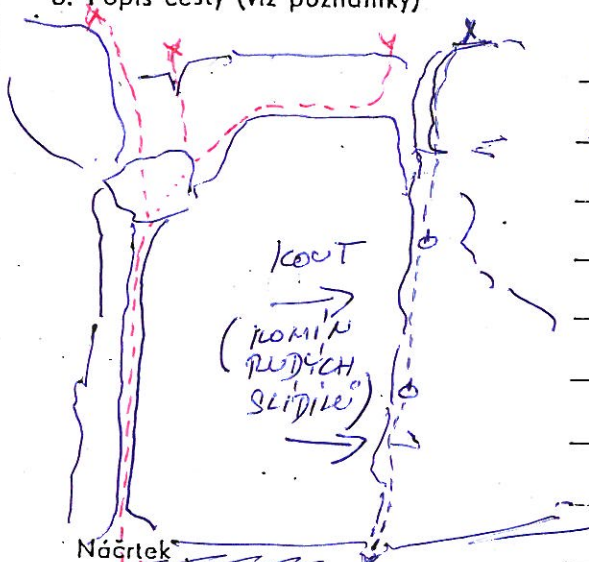 8. Popis cesty (viz poznámky)
KOUT
(KOMÍN
RUDÝCH
SLÍDILŮ)
Náčrtek